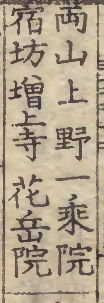 両山上野一乗院
宿坊増上寺 花岳院